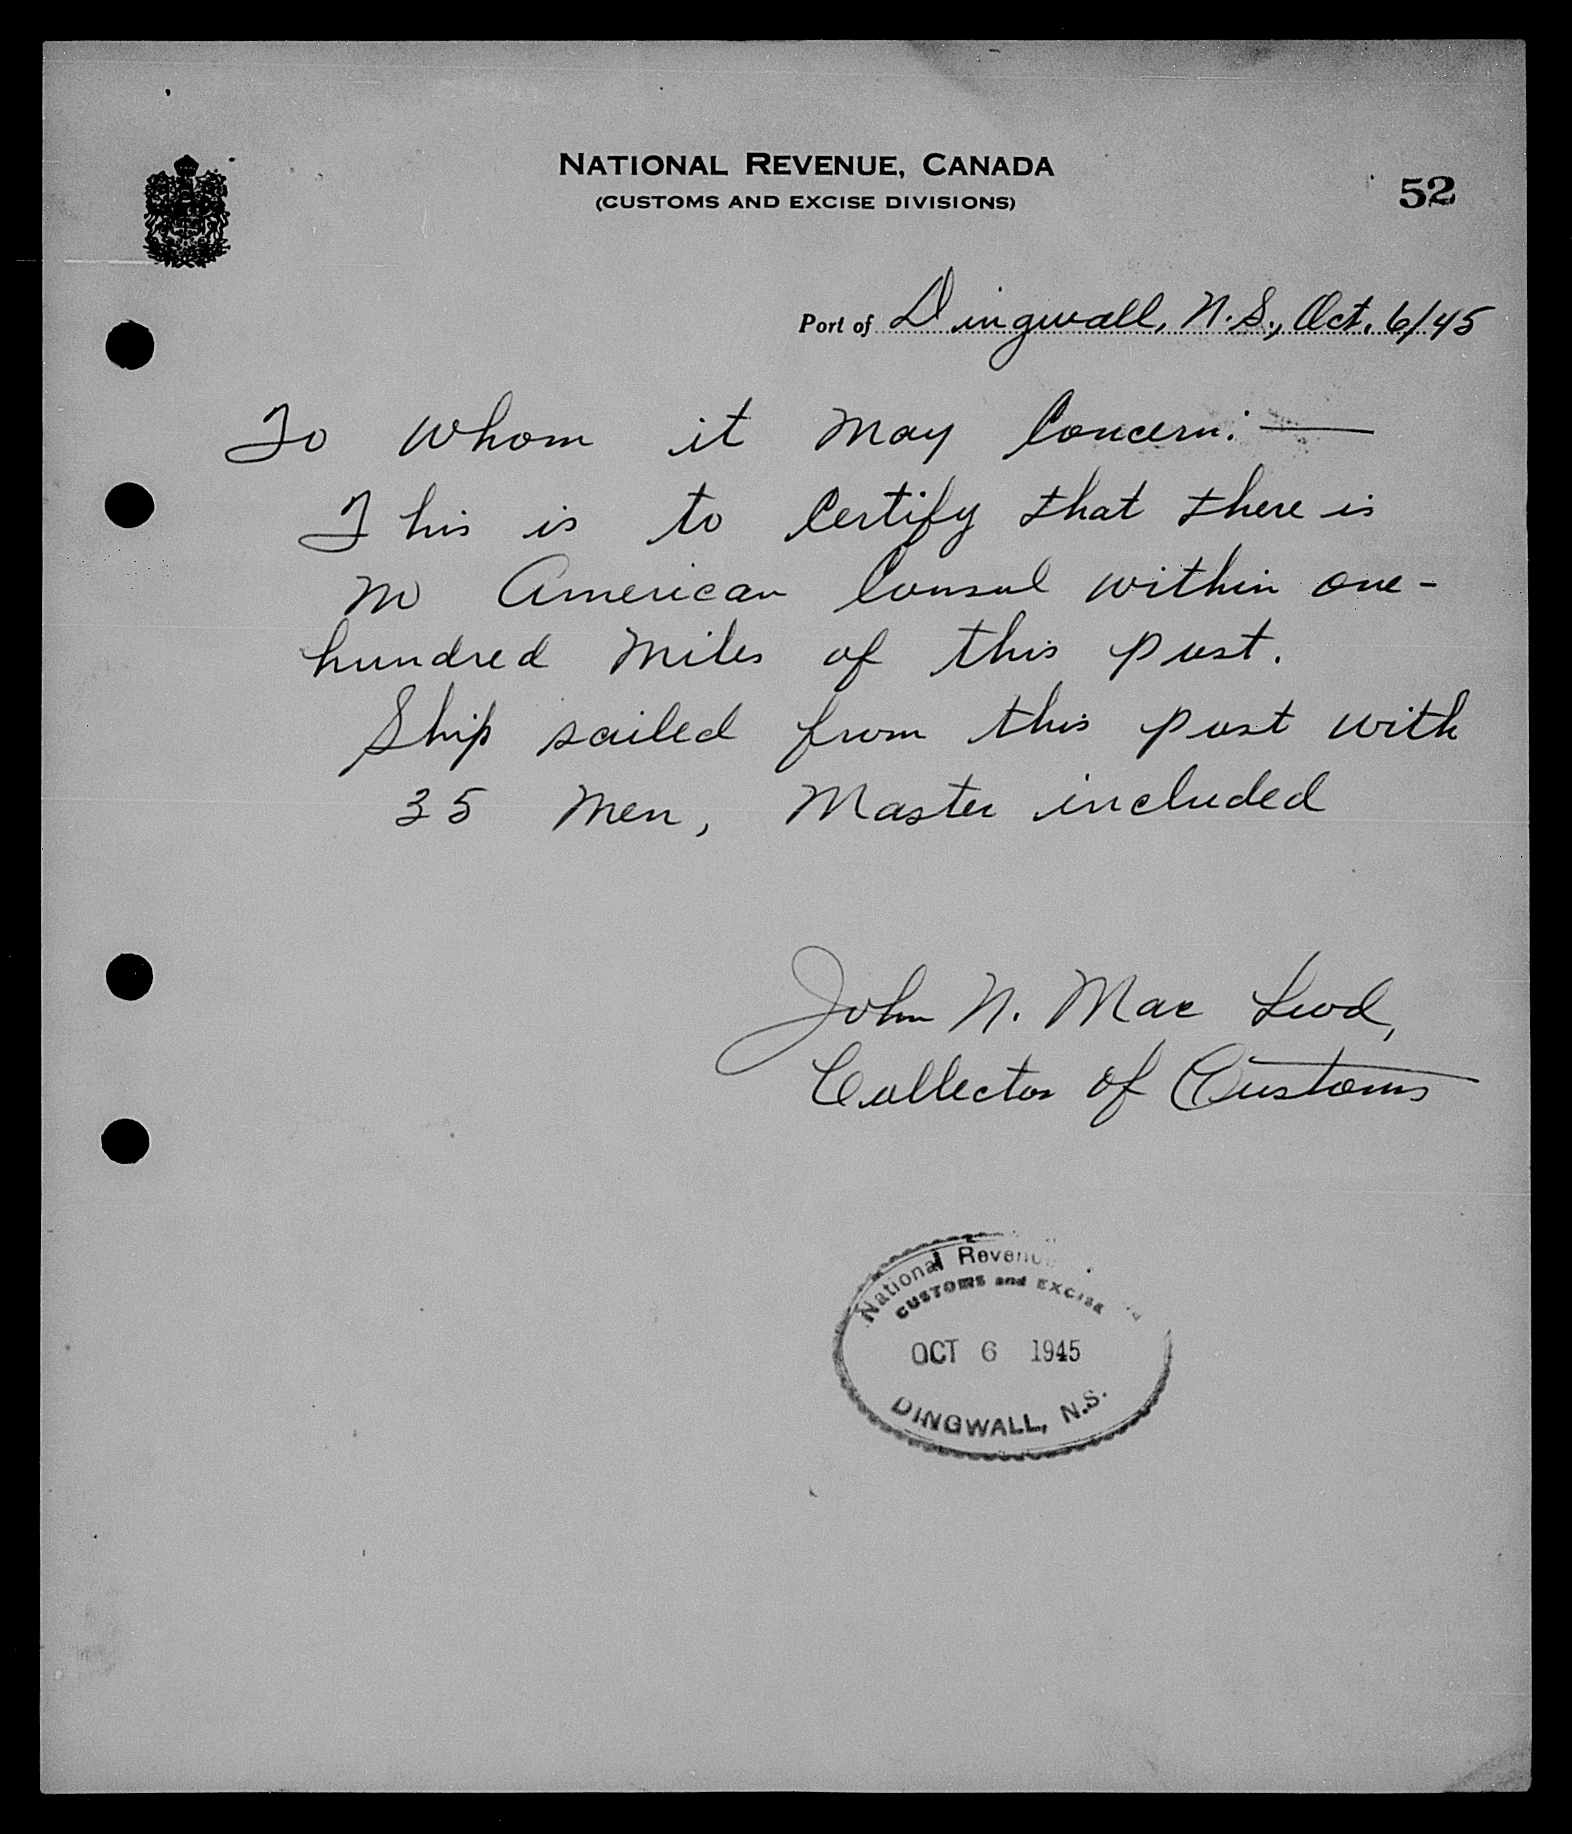 NATIONAL REVENUE, CANADA
(CUSTOMS AND EXCISE DIVISIONS)
52
Port of Dingwall, N.S., Oct. 6/45
To Whom it May Concern:—
This is to Certify that there is
no American Consul within one-
hundred Miles of this port.
Ship sailed from this port with
35 Men, Master included
John N. Mac Leod,
Collector of Customs
National Revenue
CUSTOMS and EXCISE
OCT 6 1945
DINGWALL, N.S.